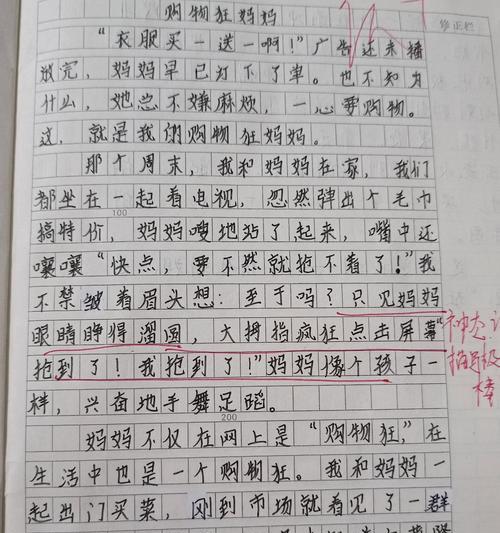 购物狂妈妈
修正栏
“衣服买一送一啊！”广告还未播
放完，妈妈早已打下了单。也不知为
什么，她总不嫌麻烦，一心要购物。
这，就是我的购物狂妈妈。
那个周末，我和妈妈在家，我们
都坐在一起看电视，忽然弹出个毛巾
100
搞特价，妈妈嗖地站了起来，嘴中还
嚷嚷“快点，要不然就抢不着了！”我
不禁皱着眉头想：至于吗？只见妈妈
眼睛睁得溜圆，大拇指疯狂点击屏幕“
神态
抢到了！我抢到了！”妈妈像个孩子一
极
棒
样，兴奋地手舞足蹈。
200
妈妈不仅在网上是“购物狂，”在
生活中也是一个购物狂。我和妈妈一
起出门买菜，刚到市场就看见了一群